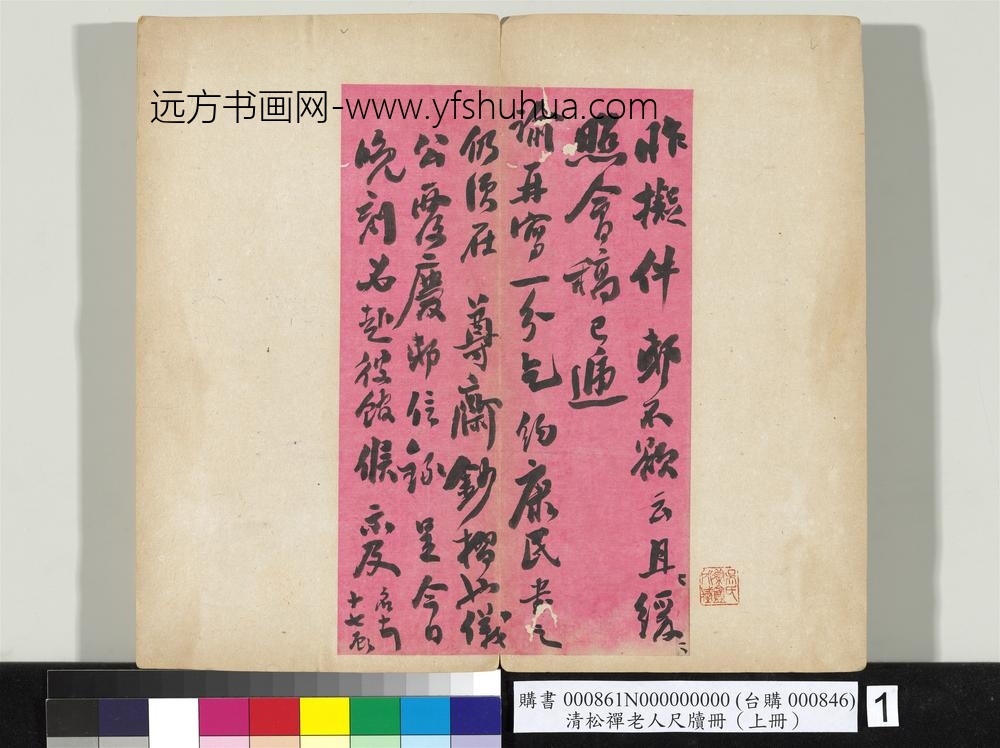 远方书画网-www.yfshuhua.com
昨擬件 邸不欲云且〻緩〻
照會稿已遞
諭再寫一分乞約康民書之
仍須在 尊齋鈔摺如儀
公覆慶邸信錄呈今日
晚刻必赴役館候
示及 名 十七辰
購書 000861N000000000 (台購 000846)
清松禪老人尺牘冊（上冊）
1